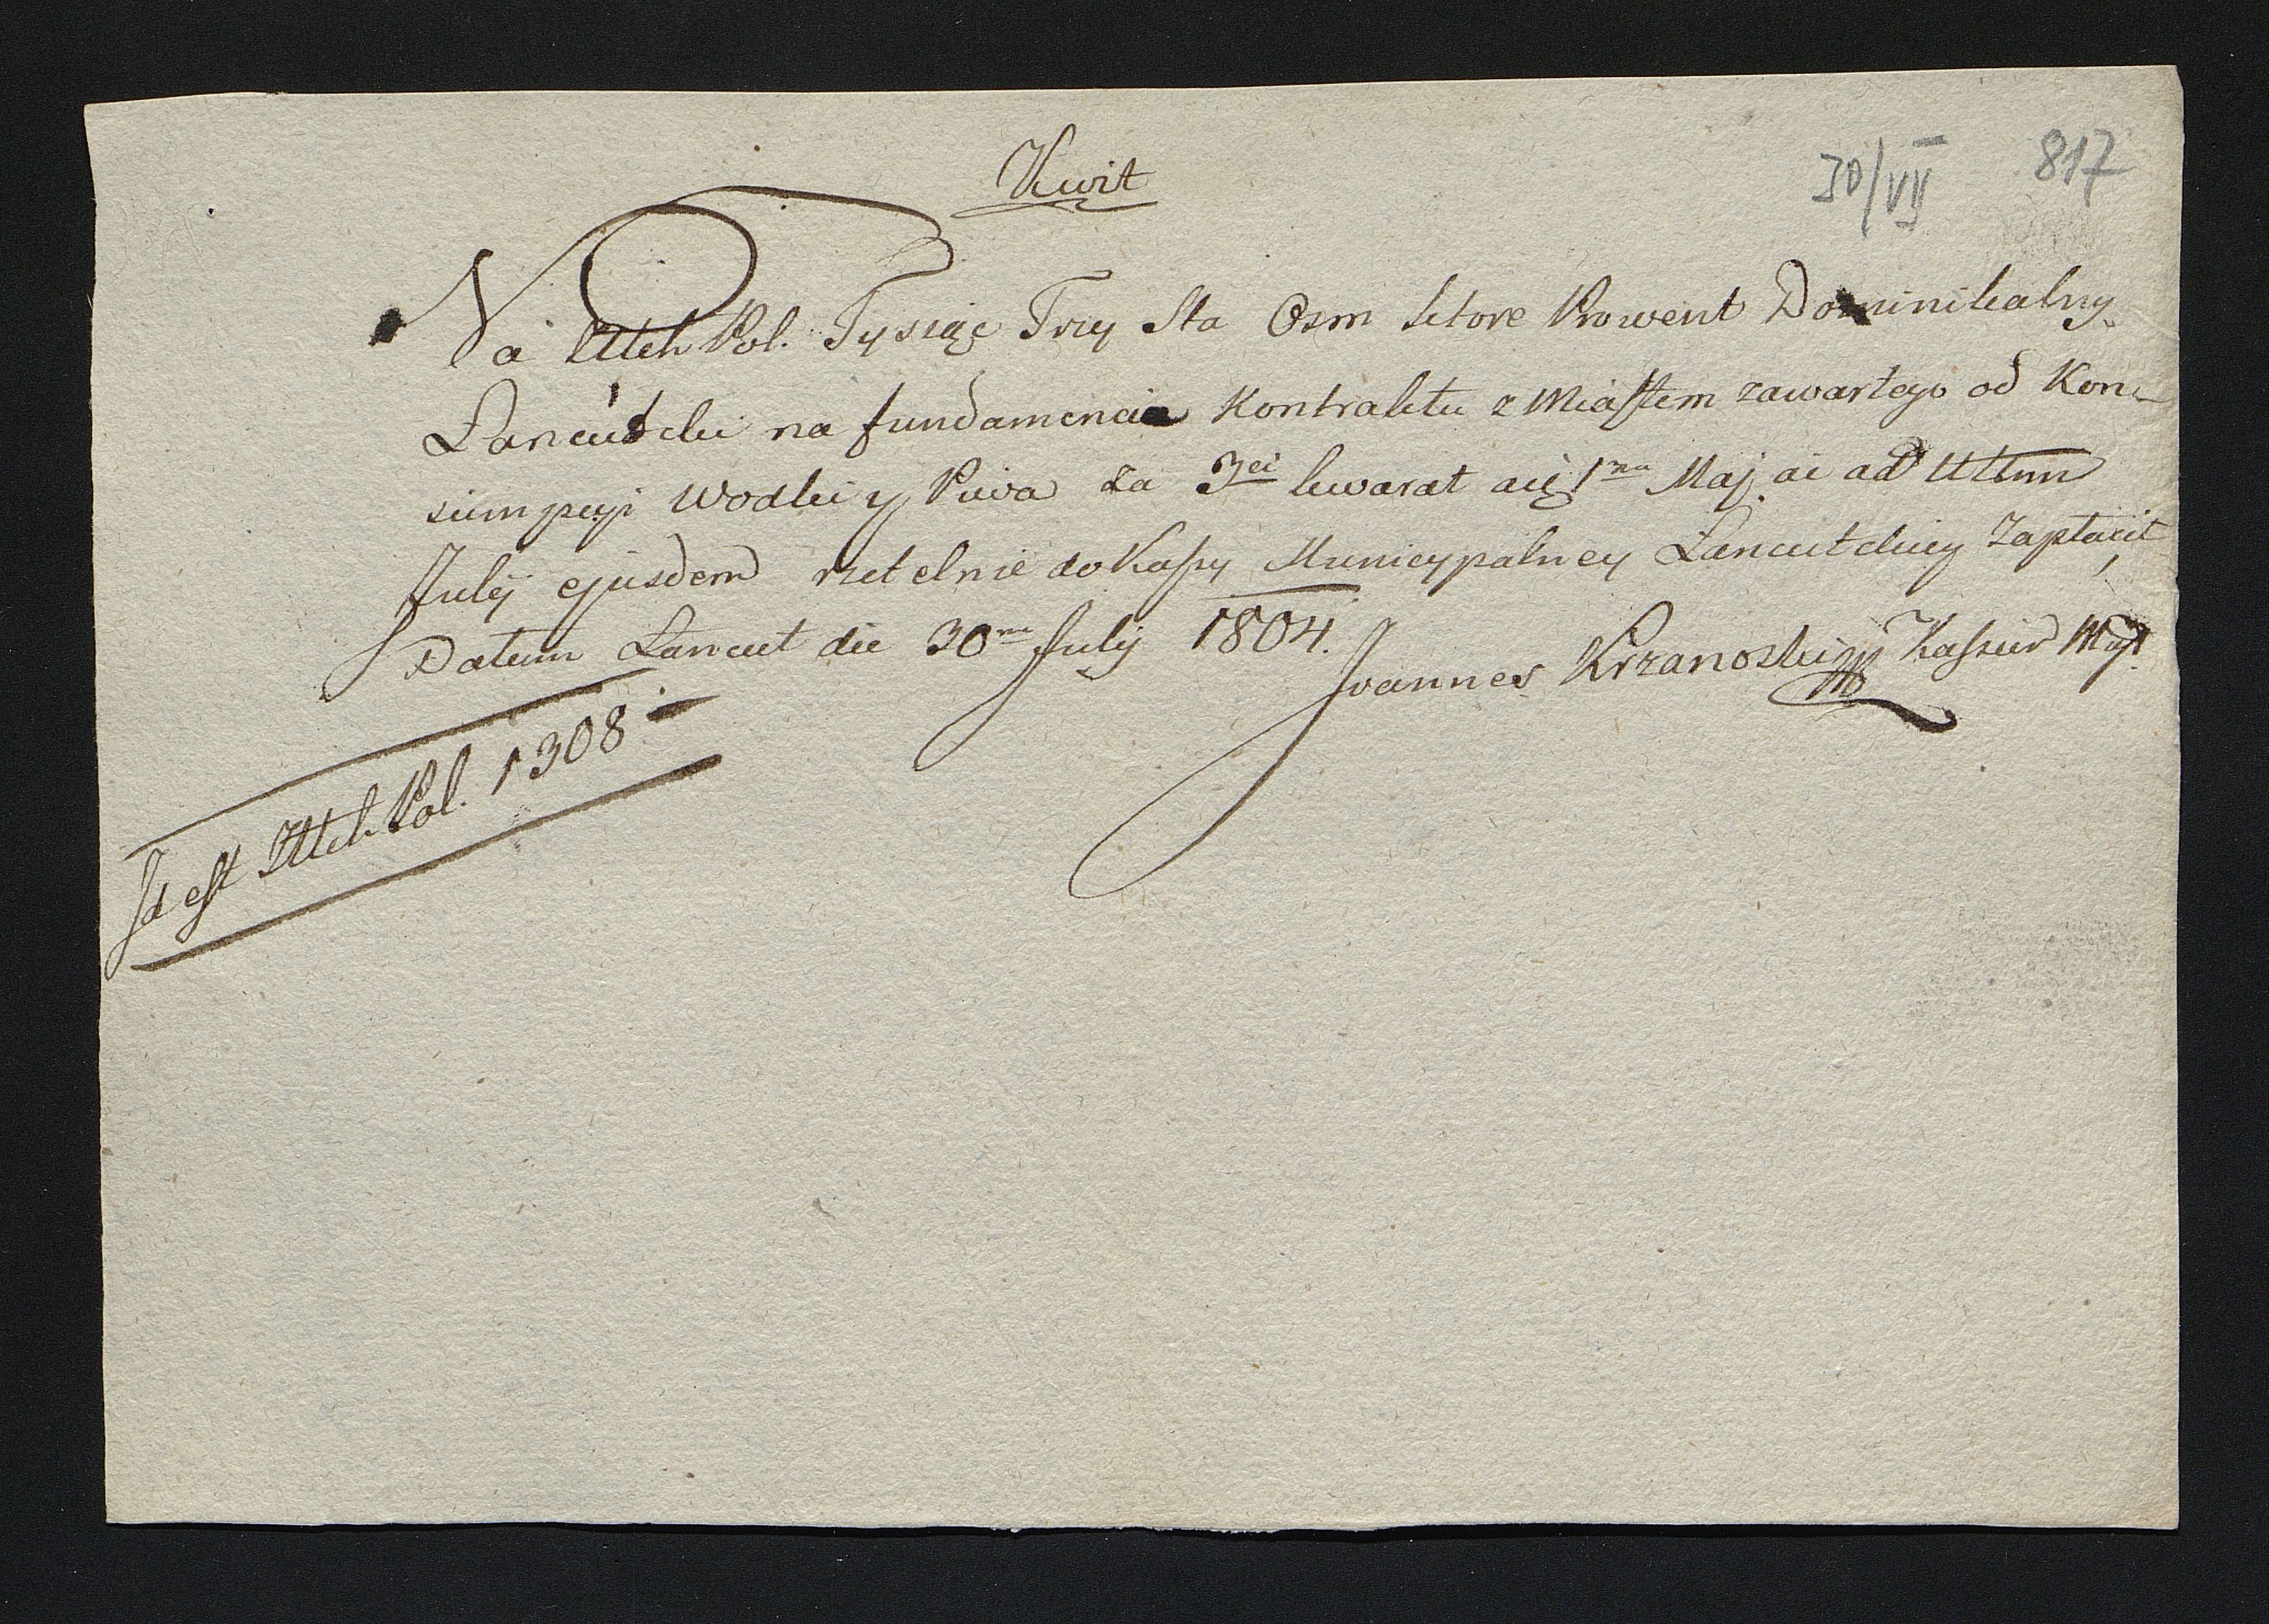 Kwit
30/VII 817
Na Złłch Pol. Tysiąc Trzy Sta Osm ktore Prowent Dominikalny
Łancutcki na fundamencie Kontraktu z Miastem zawartego od Kon-
sumpcyi Wodki y Piwa za 3ci kwarat a 1ma Maj. ai ad Ultim
Julij ejusdem rzetelnie do Kassy Municypalney Łancutckiey Zapłacił,
Datum Łancut die 30ma Julij 1804.
Joannes Krzanoski Kassier
Id est Złłch Pol. 1308